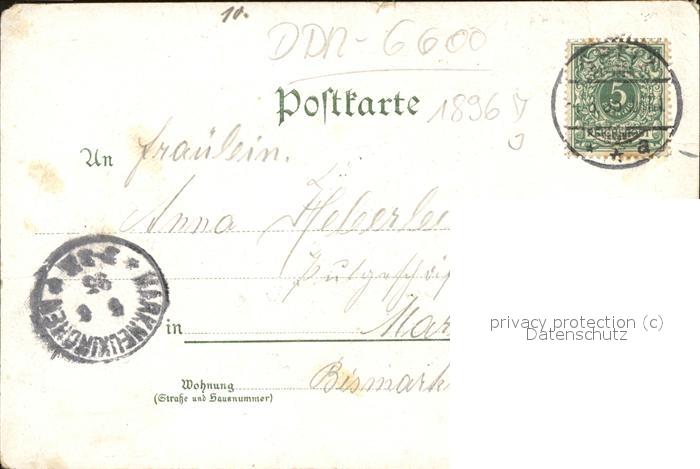 10.
DDR-6600
Postkarte
1896
5
An Fräulein.
Anna
in Mar
Bismark
Wohnung
(Straße und Hausnummer)
MARKNEUKIRCHEN
* * a
privacy protection (c)
Datenschutz